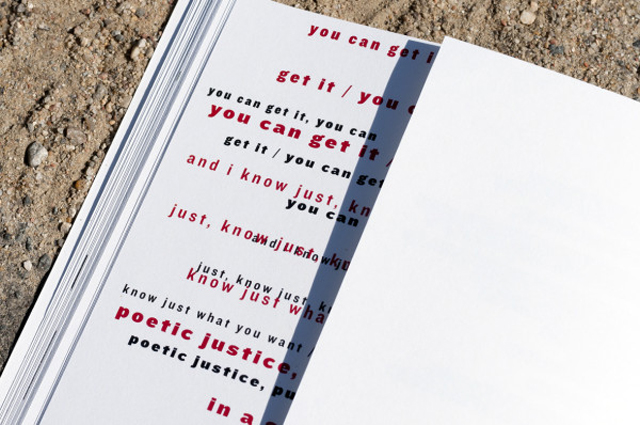 you can get i
get it / you c
you can get it, you can
you can get it /
get it / you can get
and i know just, kn
you can
just, know just, k
and i know ju
just, know just, k
know just wha
know just what you want /
poetic justice,
poetic justice, pu
in a